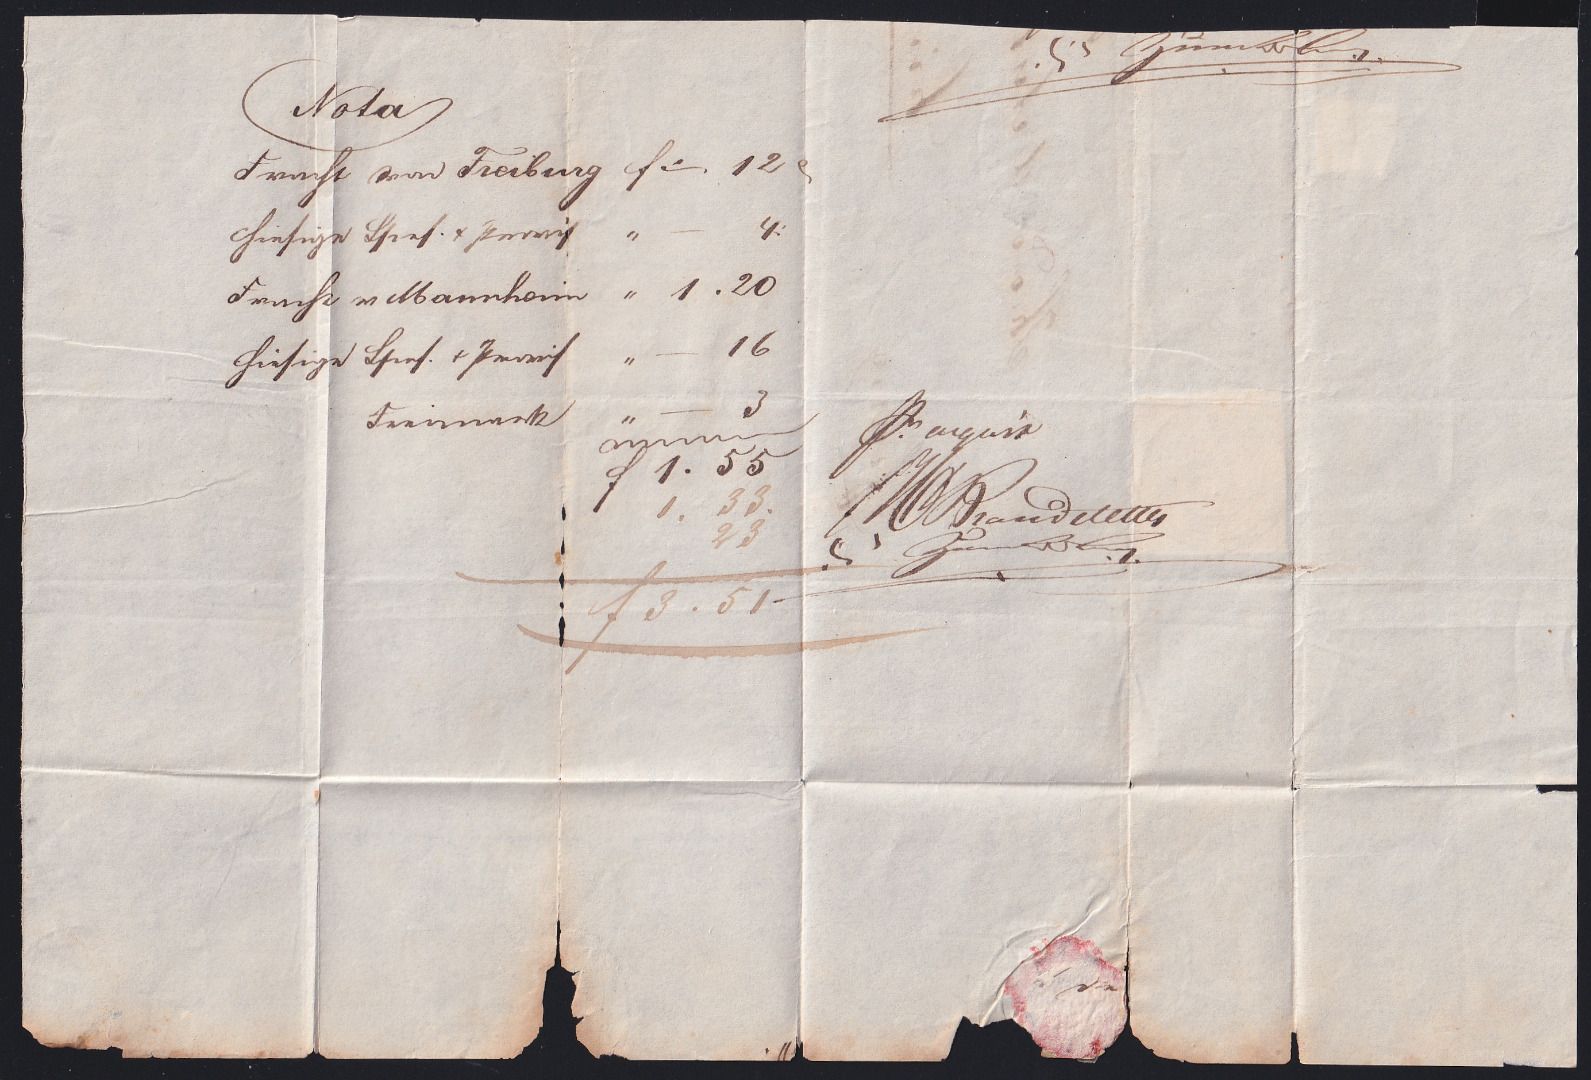 Nota
Fracht von Freiburg f –. 12
hiesige Spes. & Provis „ – 4.
Fracht v Mannheim „ 1.20
hiesige Spes. & Provis „ – 16
Freimark „ – 3
f 1.55
1.33.
23
f 3.51
Pr acquit
Brandstetter